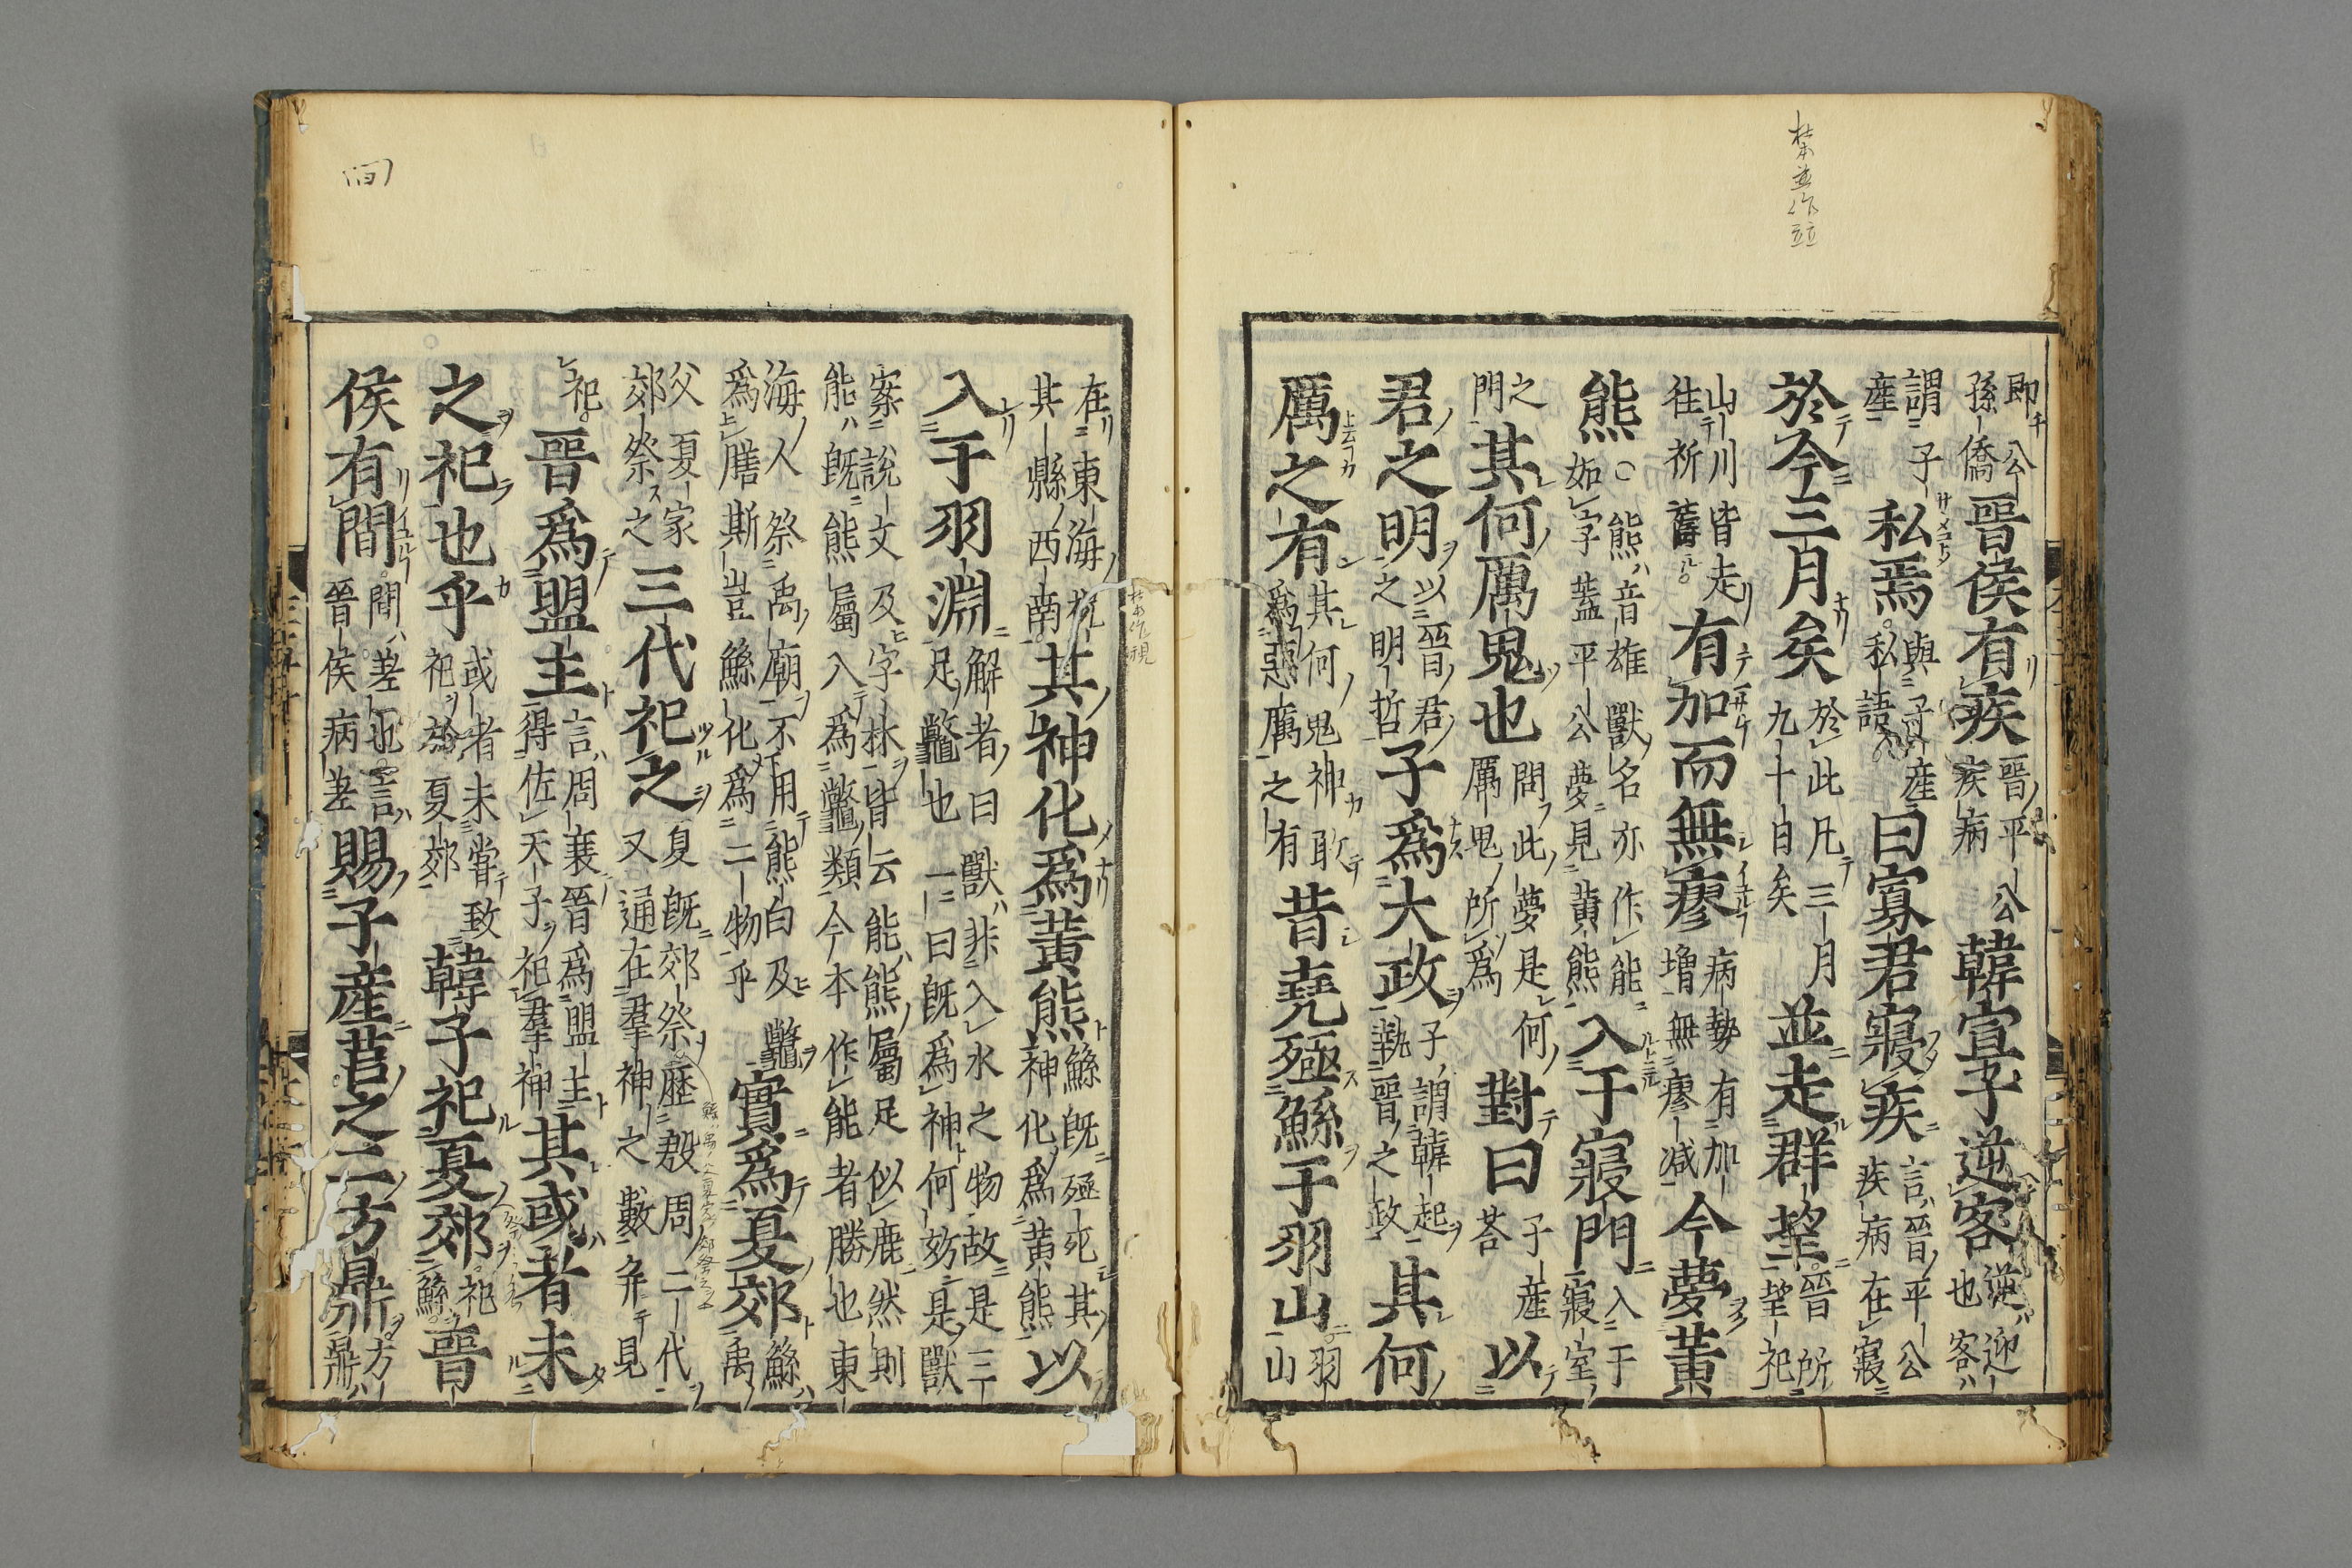 即公孫僑晋侯有疾晋平公疾病韓宣子逆客逆迎也客
謂子產私焉與子產私語曰寡君寢疾言晋平公疾病在寢
於今三月矣於此凡三月九十日矣並走群望晋所望祀
山川皆走往祈舊有加而無瘳病勢有加增無瘳減今夢黃
熊○熊音雄獸名亦作能如字蓋平公夢見黃熊入于寢門入于寢室
之門其何厲鬼也問此夢是何厲鬼所爲對曰子產荅以
君之明以晋君之明哲子爲大政子謂韓起執晋之政其何
厲之有其何鬼神敢爲惡厲之有昔堯殛鯀于羽山羽山
在東海祝其縣西南其神化爲黃熊鯀既殛死其神化爲黃熊以
入于羽淵解者曰獸非入水之物故是三足鼈也一曰既爲神何妨是獸
案說文及字林皆云能熊屬足似鹿然則能既熊屬入爲鼈類今本作能者勝也東
海人祭禹廟不用熊白及鼈爲膳斯豈鯀化爲二物乎實爲夏郊鯀禹
父夏家郊祭之三代祀之夏既郊祭歷殷周二代又通在羣神之數并見
祀晉爲盟主言周衰晋爲盟主得佐天子祀羣神其或者未
之祀也乎或者未嘗致祀於夏郊韓子祀夏郊祀鯀晋
侯有間間差也言晋侯病差賜子產莒之二方鼎方鼎